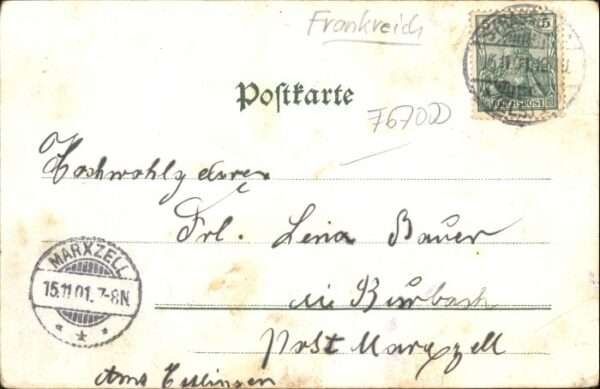 Frankreich
5
Postkarte
76700
Hochwohlgeboren
Frl. Lena Bauer
in Burbach
Post Marxzell
Amt Ettlingen
MARXZELL
15.11.01. 7-8N.